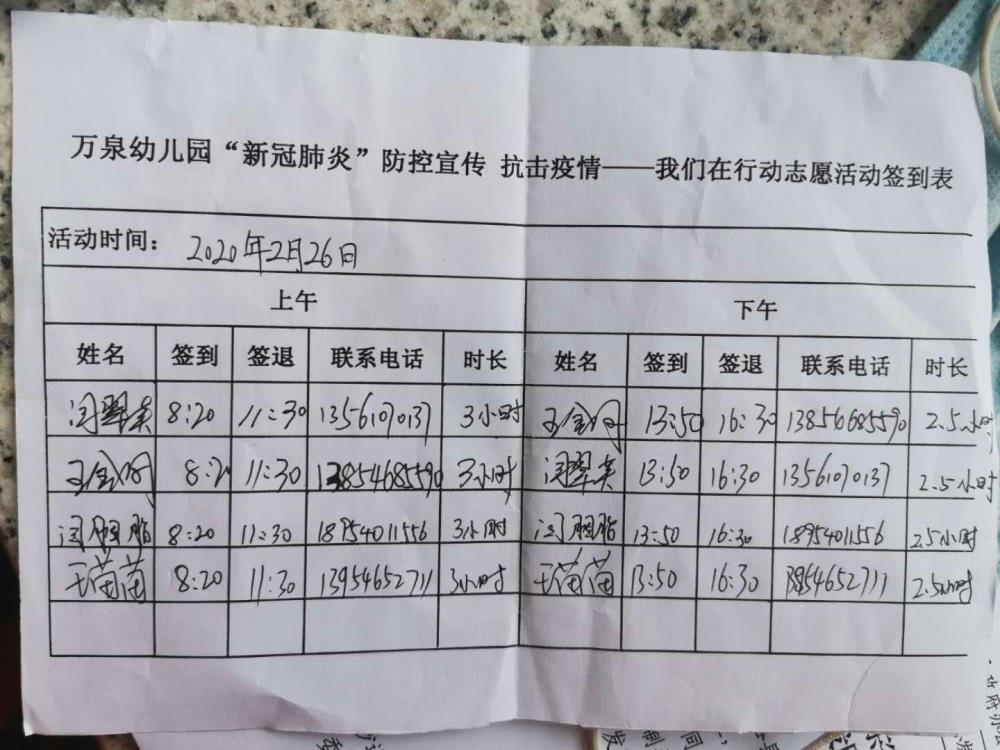 万泉幼儿园“新冠肺炎”防控宣传 抗击疫情——我们在行动志愿活动签到表
活动时间: 2020年2月26日
上午 下午
姓名 签到 签退 联系电话 时长 姓名 签到 签退 联系电话 时长
闫翠英 8:20 11:30 13561070137 3小时 13:50 16:30 13856685590 2.5小时
8:20 11:30 13854685590 3小时 闫翠英 13:50 16:30 13561070137 2.5小时
闫胭脂 8:20 11:30 18954011556 3小时 闫胭脂 13:50 16:30 18954011556 2.5小时
王苗苗 8:20 11:30 13954652711 3小时 王苗苗 13:50 16:30 13954652711 2.5小时